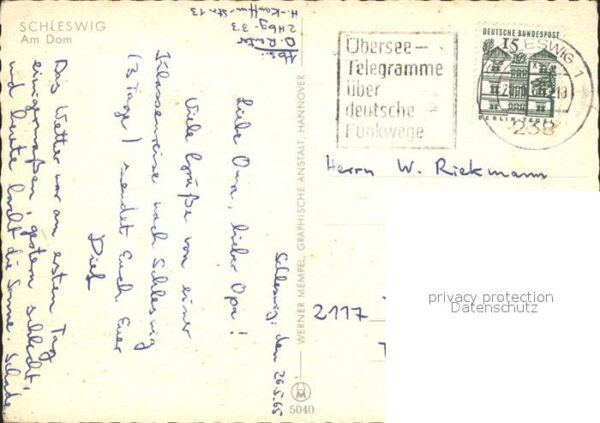 SCHLESWIG
Am Dom
Abs.:
D. Reuter
2 Hbg. 33
Schleswig, den 26.5.65
Liebe Oma, lieber Opa!
Viele Grüße von einer
Klassenreise nach Schleswig
(3 Tage) sendet Euch Euer
Das Wetter war am ersten Tag
einigermaßen, gestern schlecht,
und heute lacht die Sonne. Schade,
WERNER MEMPEL, GRAPHISCHE ANSTALT, HANNOVER
5040
Übersee-
Telegramme
über
deutsche
Funkwege
DEUTSCHE BUNDESPOST
15
BERLIN-TEGEL
SLESWIG 1
238
Herrn W. Rickmann
2117
privacy protection
Datenschutz